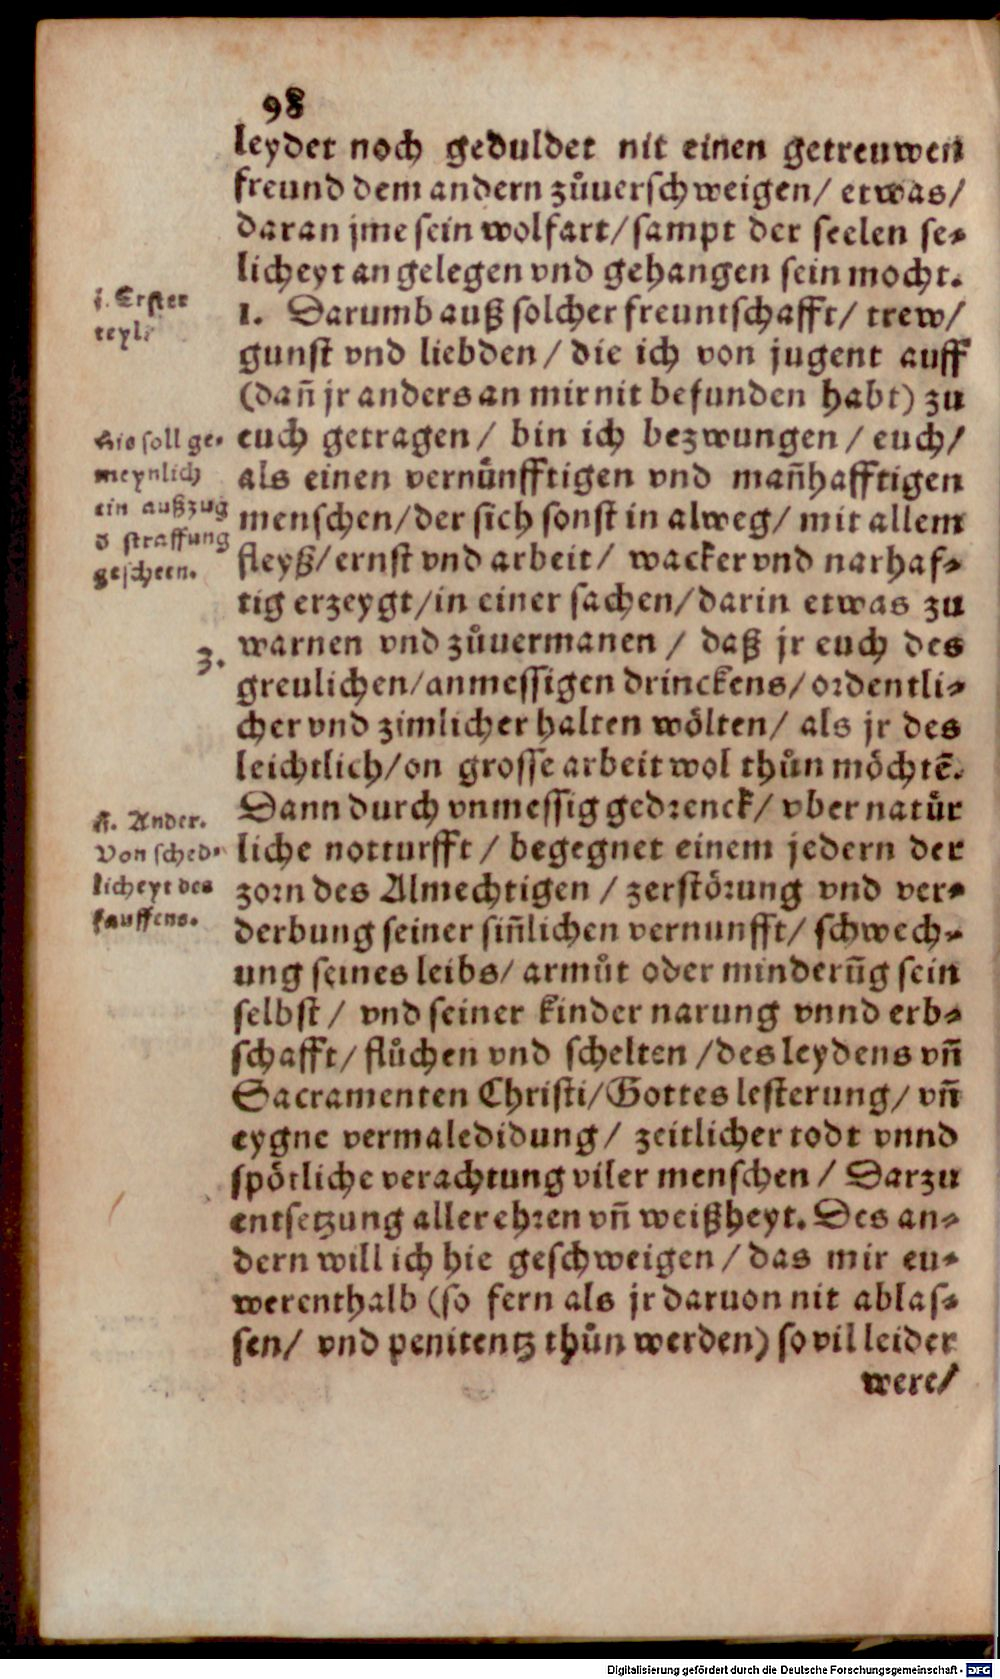 98
leydet noch geduldet nit einen getreuwen
freund dem andern zůuerschweigen/ etwas/
daran jme sein wolfart/ sampt der seelen se⸗
licheyt an gelegen vnd gehangen sein mocht.
j. Erster
teyl.
1. Darumb auß solcher freuntschafft/ trew/
gunst vnd liebden/ die ich von jugent auff
(dañ jr anders an mir nit befunden habt) zu
Hie soll ge⸗
meynlich
ein außzug
d straffung
gescheen.
euch getragen/ bin ich bezwungen/ euch/
als einen vernůnfftigen vnd mañhafftigen
menschen/ der sich sonst in alweg/ mit allem
fleyß/ ernst vnd arbeit/ wacker vnd narhaf⸗
tig erzeygt/ in einer sachen/ darin etwas zu
3.
warnen vnd zůuermanen/ daß jr euch des
greulichen/ anmessigen drinckens/ ordentli⸗
cher vnd zimlicher halten wölten/ als jr des
leichtlich/ on grosse arbeit wol thůn möchtē.
Ander.
Von sched⸗
licheyt des
sauffens.
Dann durch vnmessig gedrenck/ vber natůr
liche notturfft/ begegnet einem jedern der
zorn des Almechtigen/ zerstörung vnd ver⸗
derbung seiner siñlichen vernunfft/ schwech⸗
ung seines leibs/ armůt oder minderũg sein
selbst/ vnd seiner kinder narung vnnd erb⸗
schafft/ flůchen vnd schelten/ des leydens vñ
Sacramenten Christi/ Gottes lesterung/ vñ
eygne vermaledidung/ zeitlicher todt vnnd
spötliche verachtung viler menschen/ Darzu
entsetzung aller ehren vñ weißheyt. Des an⸗
dern will ich hie geschweigen/ das mir eu⸗
werenthalb (so fern als jr daruon nit ablas⸗
sen/ vnd penitentz thůn werden) so vil leider
were/
Digitalisierung gefördert durch die Deutsche Forschungsgemeinschaft - DFG